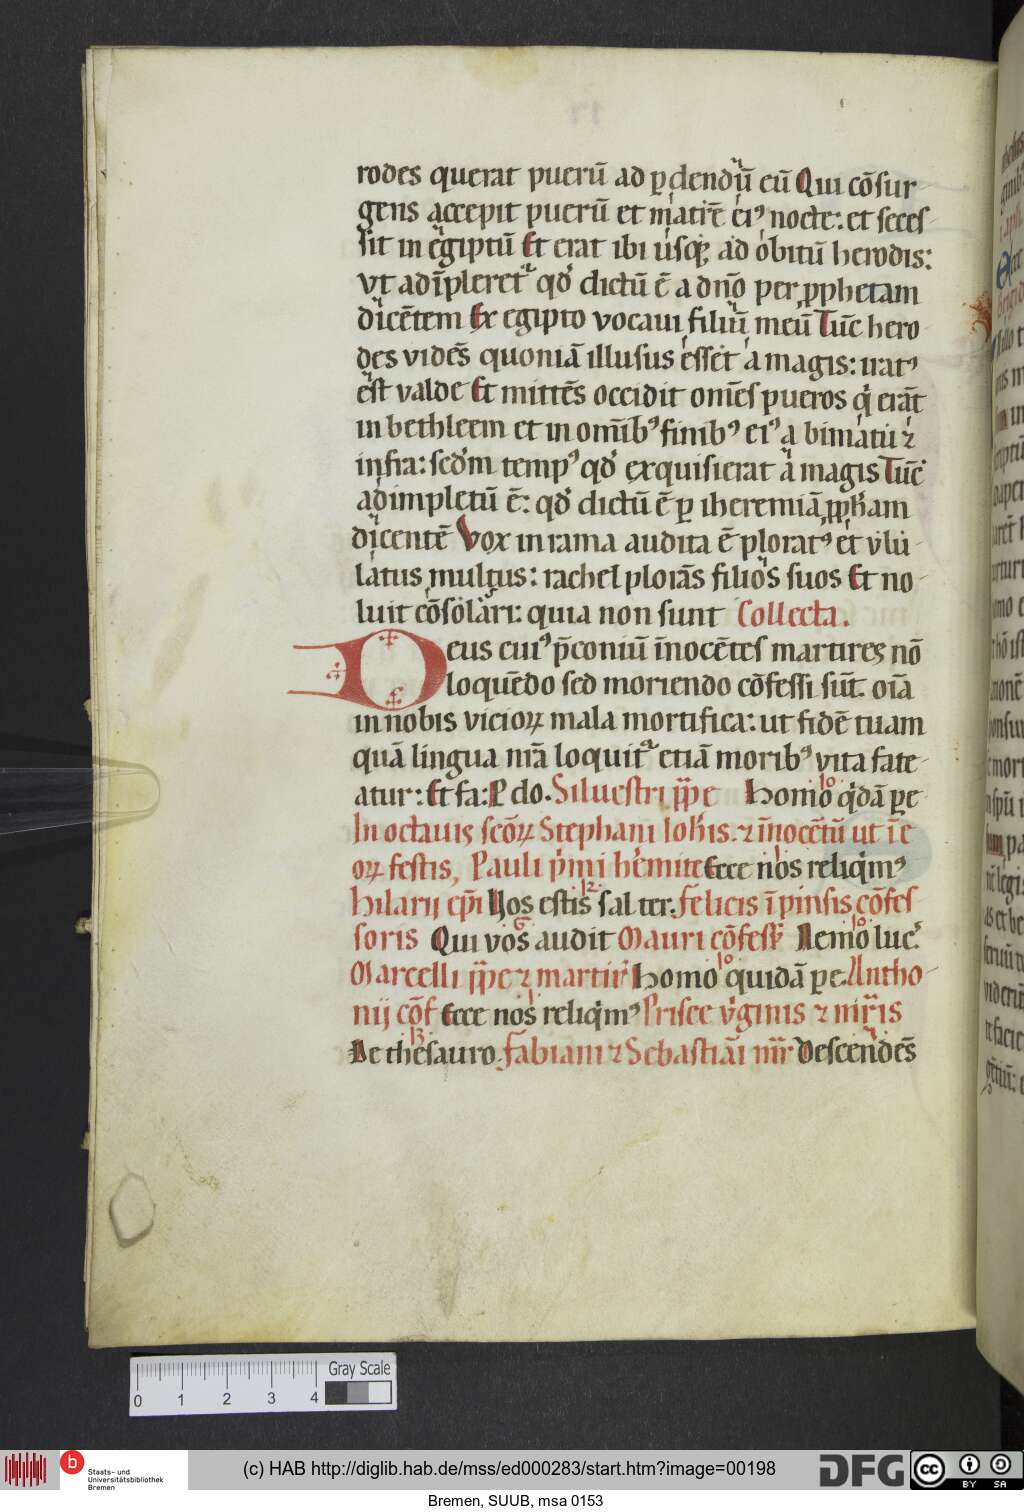 rodes querat puerū ad ꝑdendū eū Qui cōsur
gens accepit puerū et matrē eiꝰ nocte: et seces
sit in egiptū Et erat ibi usqꝫ ad obitū herodis:
vt adīpleret᷑ qd̓ dictū ē a dn̄o per ꝓphetam
dicētem Ex egipto vocaui filiū meū Tūc hero
des vidēs quoniā illusus esset a magis: iratꝰ
est valde Et mittēs occidit om̄es pueros q̇ erāt
in bethleem et in om̄ibꝰ finibꝰ eiꝰ a bimatu ⁊
infra: sed̓m tempꝰ qd̓ exquisierat a magis Tūc
adimpletū ē: qd̓ dictū ē ꝑ iheremiā ꝓph̓am
dicentē Vox in rama audita ē ploratꝰ et vlu
latus multus: rachel plorās filios suos Et no
luit cōsolari: quia non sunt Collecta.
Deus cuiꝰ p̄coniū īnocētes martires nō
loquēdo sed moriendo cōfessi sūt. oīa
in nobis vicioꝝ mala mortifica: ut fidē tuam
quā lingua nr̄a loquit᷑ etiā moribꝰ vita fate
atur: Et fa: P do. Siluestri ꝑpe Homo q̇dā ꝑe
In octauis scōꝝ Stephani Ioh̓is. ⁊ īnocētū ut ī e
oꝝ festis, Pauli p̓mi h̓emite Ecce nos reliq̇mꝰ
hilarij ep̄i Uos estis sal ter. felicis ī pinsis cōfes
soris Qui vos audit Mauri cōfess̓ Nemo luc̓
Marcelli ꝑpe ⁊ martir̓ Homo quidā ꝑe. Antho
nij cōf Ecce nos reliq̇mꝰ Prisce v̓ginis ⁊ mr̄is
De thesauro. fabiani ⁊ Sebastiāi mr̄r Descendēs
0 1 2 3 4 Gray Scale
Staats- und
Universitätsbibliothek
Bremen
(c) HAB http://diglib.hab.de/mss/ed000283/start.htm?image=00198
DFG
CC BY SA
Bremen, SUUB, msa 0153